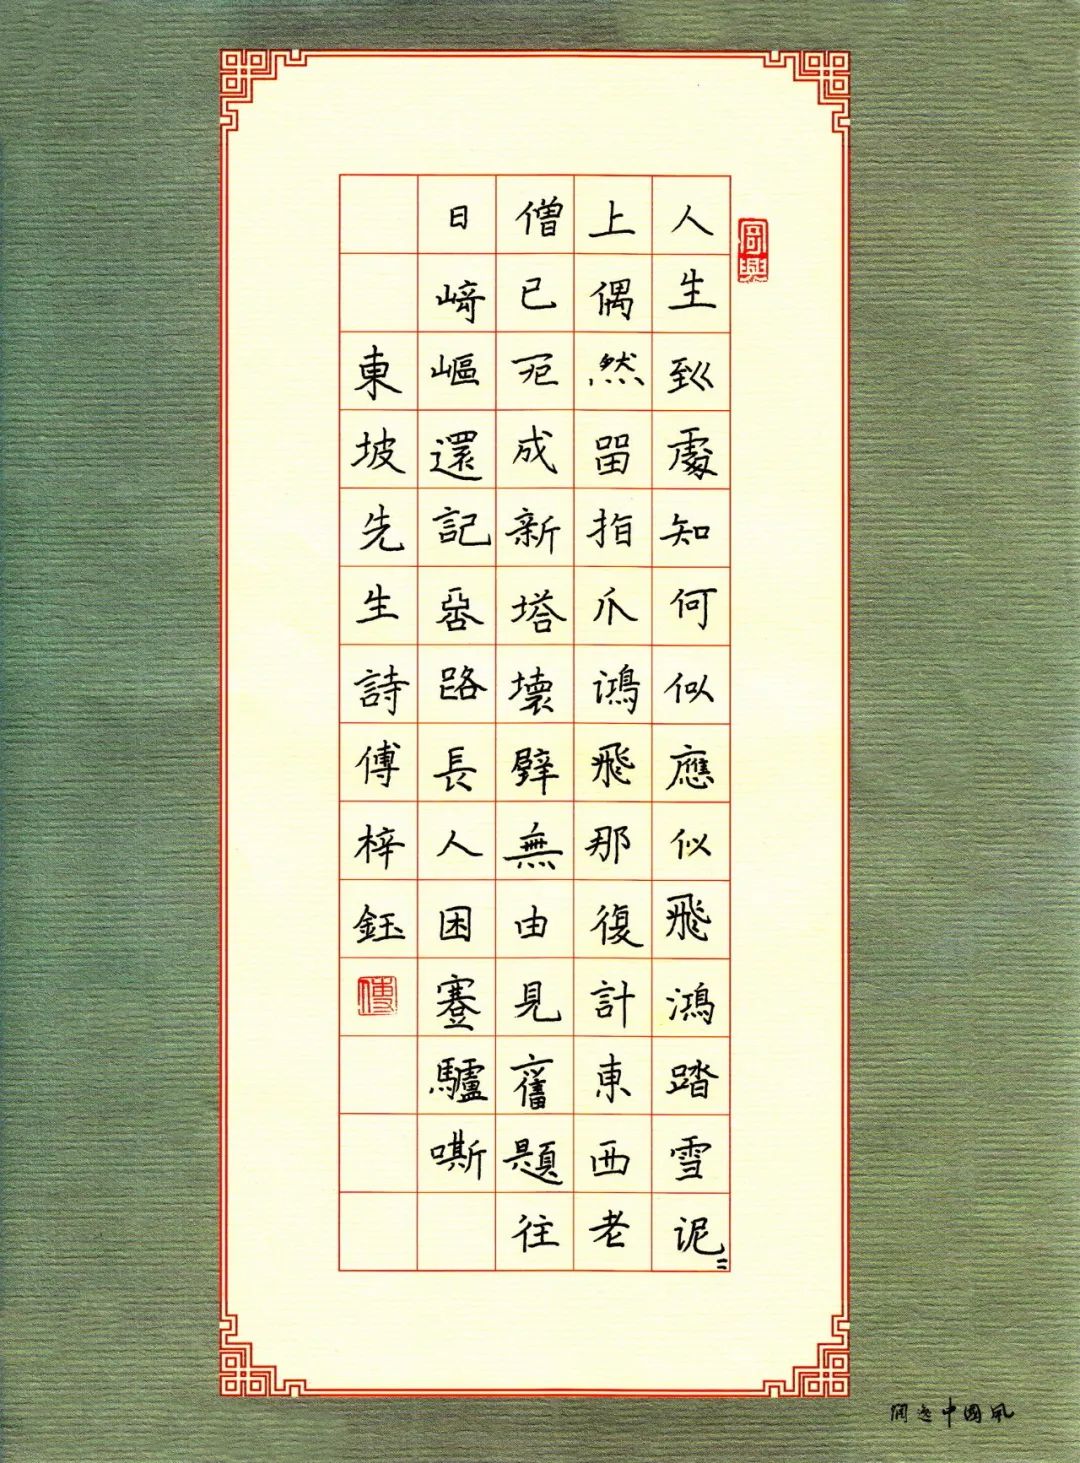 人生到處知何似應似飛鴻踏雪泥〻
上偶然留指爪鴻飛那復計東西老
僧已死成新塔壞壁無由見舊題往
日崎嶇還記否路長人困蹇驢嘶
東坡先生詩傅梓鈺
傅
中國风